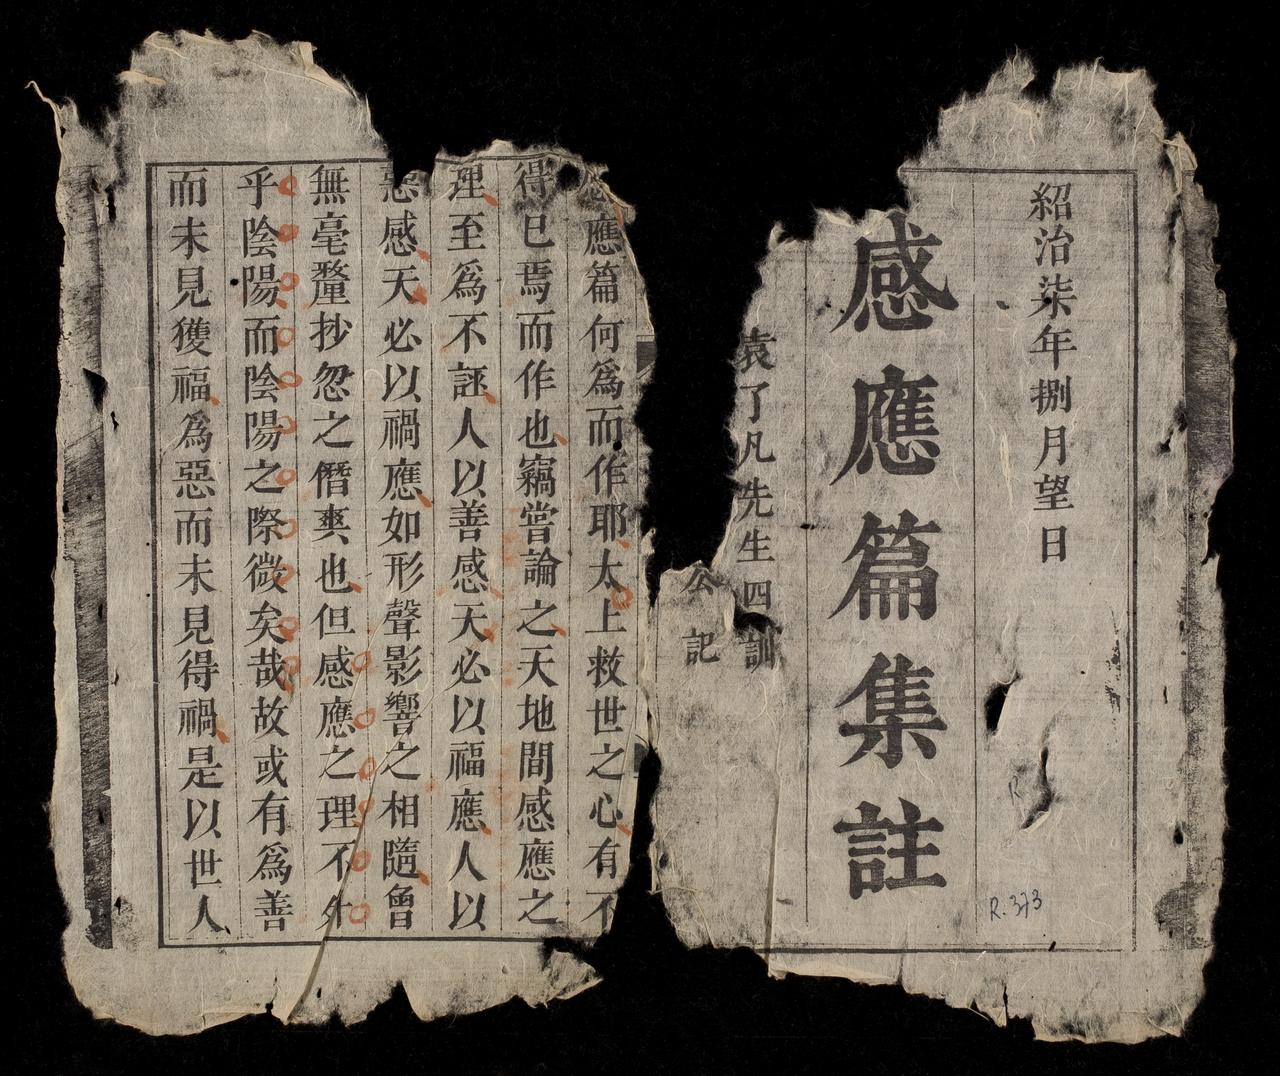 紹治柒年捌月望日
感應篇集註
袁了凡先生四訓
公記
R.373
應篇何爲而作耶太上救世之心有不
得已焉而作也竊嘗論之天地間感應之
理至爲不誣人以善感天必以福應人以
惡感天必以禍應如形聲影響之相隨會
無毫釐抄忽之僭爽也但感應之理不外
乎陰陽而陰陽之際微矣哉故或有爲善
而未見獲福爲惡而未見得禍是以世人